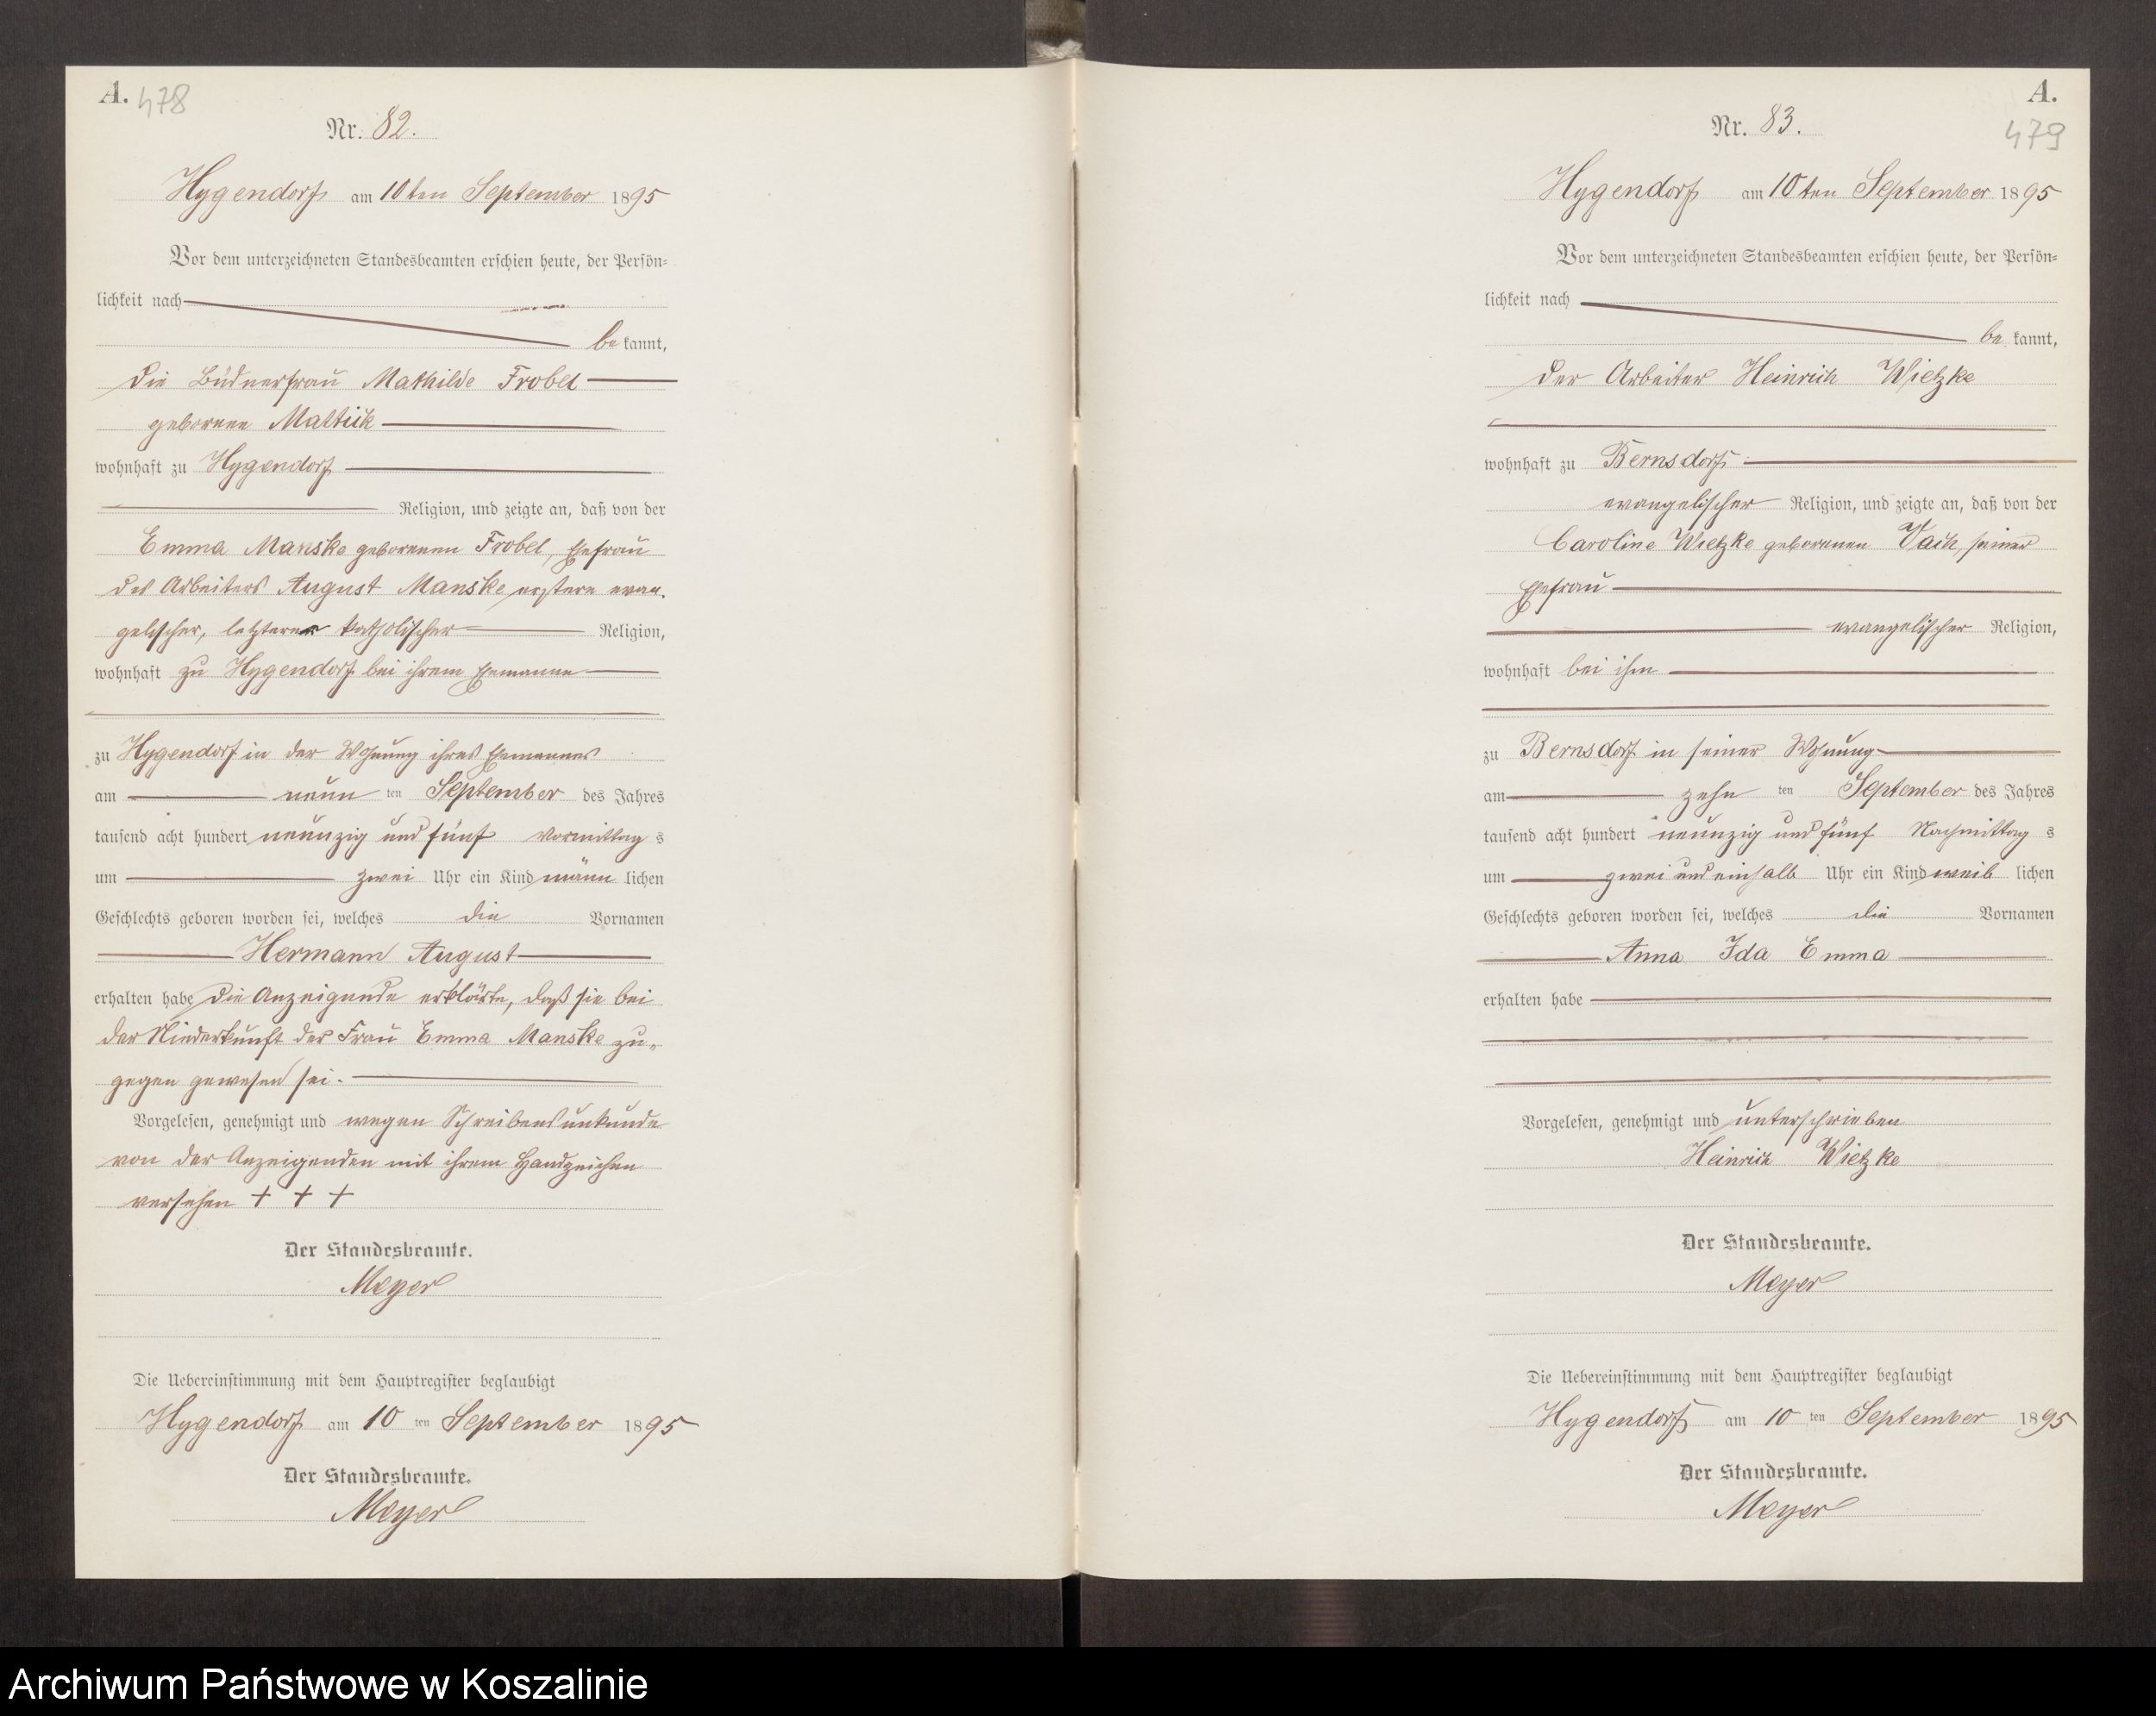 A. 478
Nr. 82.
Hygendorf am 10ten September 1895
Vor dem unterzeichneten Standesbeamten erschien heute, der Persön-
lichkeit nach
be kannt,
die Büdnerfrau Mathilde Frobel
geborene Mattick
wohnhaft zu Hygendorf
Religion, und zeigte an, daß von der
Emma Manske geborenen Frobel, Ehefrau
des Arbeiters August Manske erstere evan.
gelischer, letzterer katholischer Religion,
wohnhaft zu Hygendorf bei ihrem Ehemanne
zu Hygendorf in der Wohnung ihres Ehemannes
am neun ten September des Jahres
tausend acht hundert neunzig und fünf Vormittag s
um zwei Uhr ein Kind männ lichen
Geschlechts geboren worden sei, welches die Vornamen
Hermann August
erhalten habe die Anzeigende erklärte, daß sie bei
der Niederkunft der Frau Emma Manske zu-
gegen gewesen sei.
Vorgelesen, genehmigt und wegen Schreibensunkunde
von der Anzeigenden mit ihrem Handzeichen
versehen + + +
Der Standesbeamte.
Meyer
Die Uebereinstimmung mit dem Hauptregister beglaubigt
Hygendorf am 10 ten September 1895
Der Standesbeamte.
Meyer
A.
479
Nr. 83.
Hygendorf am 10ten September 1895
Vor dem unterzeichneten Standesbeamten erschien heute, der Persön-
lichkeit nach
be kannt,
der Arbeiter Heinrich Wietzke
wohnhaft zu Bernsdorf
evangelischer Religion, und zeigte an, daß von der
Caroline Wietzke geborenen Vaick, seiner
Ehefrau
evangelischer Religion,
wohnhaft bei ihm
zu Bernsdorf in seiner Wohnung
am zehn ten September des Jahres
tausend acht hundert neunzig und fünf Nachmittag s
um zwei und einhalb Uhr ein Kind weib lichen
Geschlechts geboren worden sei, welches die Vornamen
Anna Ida Emma
erhalten habe
Vorgelesen, genehmigt und unterschrieben
Heinrich Wietzke
Der Standesbeamte.
Meyer
Die Uebereinstimmung mit dem Hauptregister beglaubigt
Hygendorf am 10 ten September 1895
Der Standesbeamte.
Meyer
Archiwum Państwowe w Koszalinie